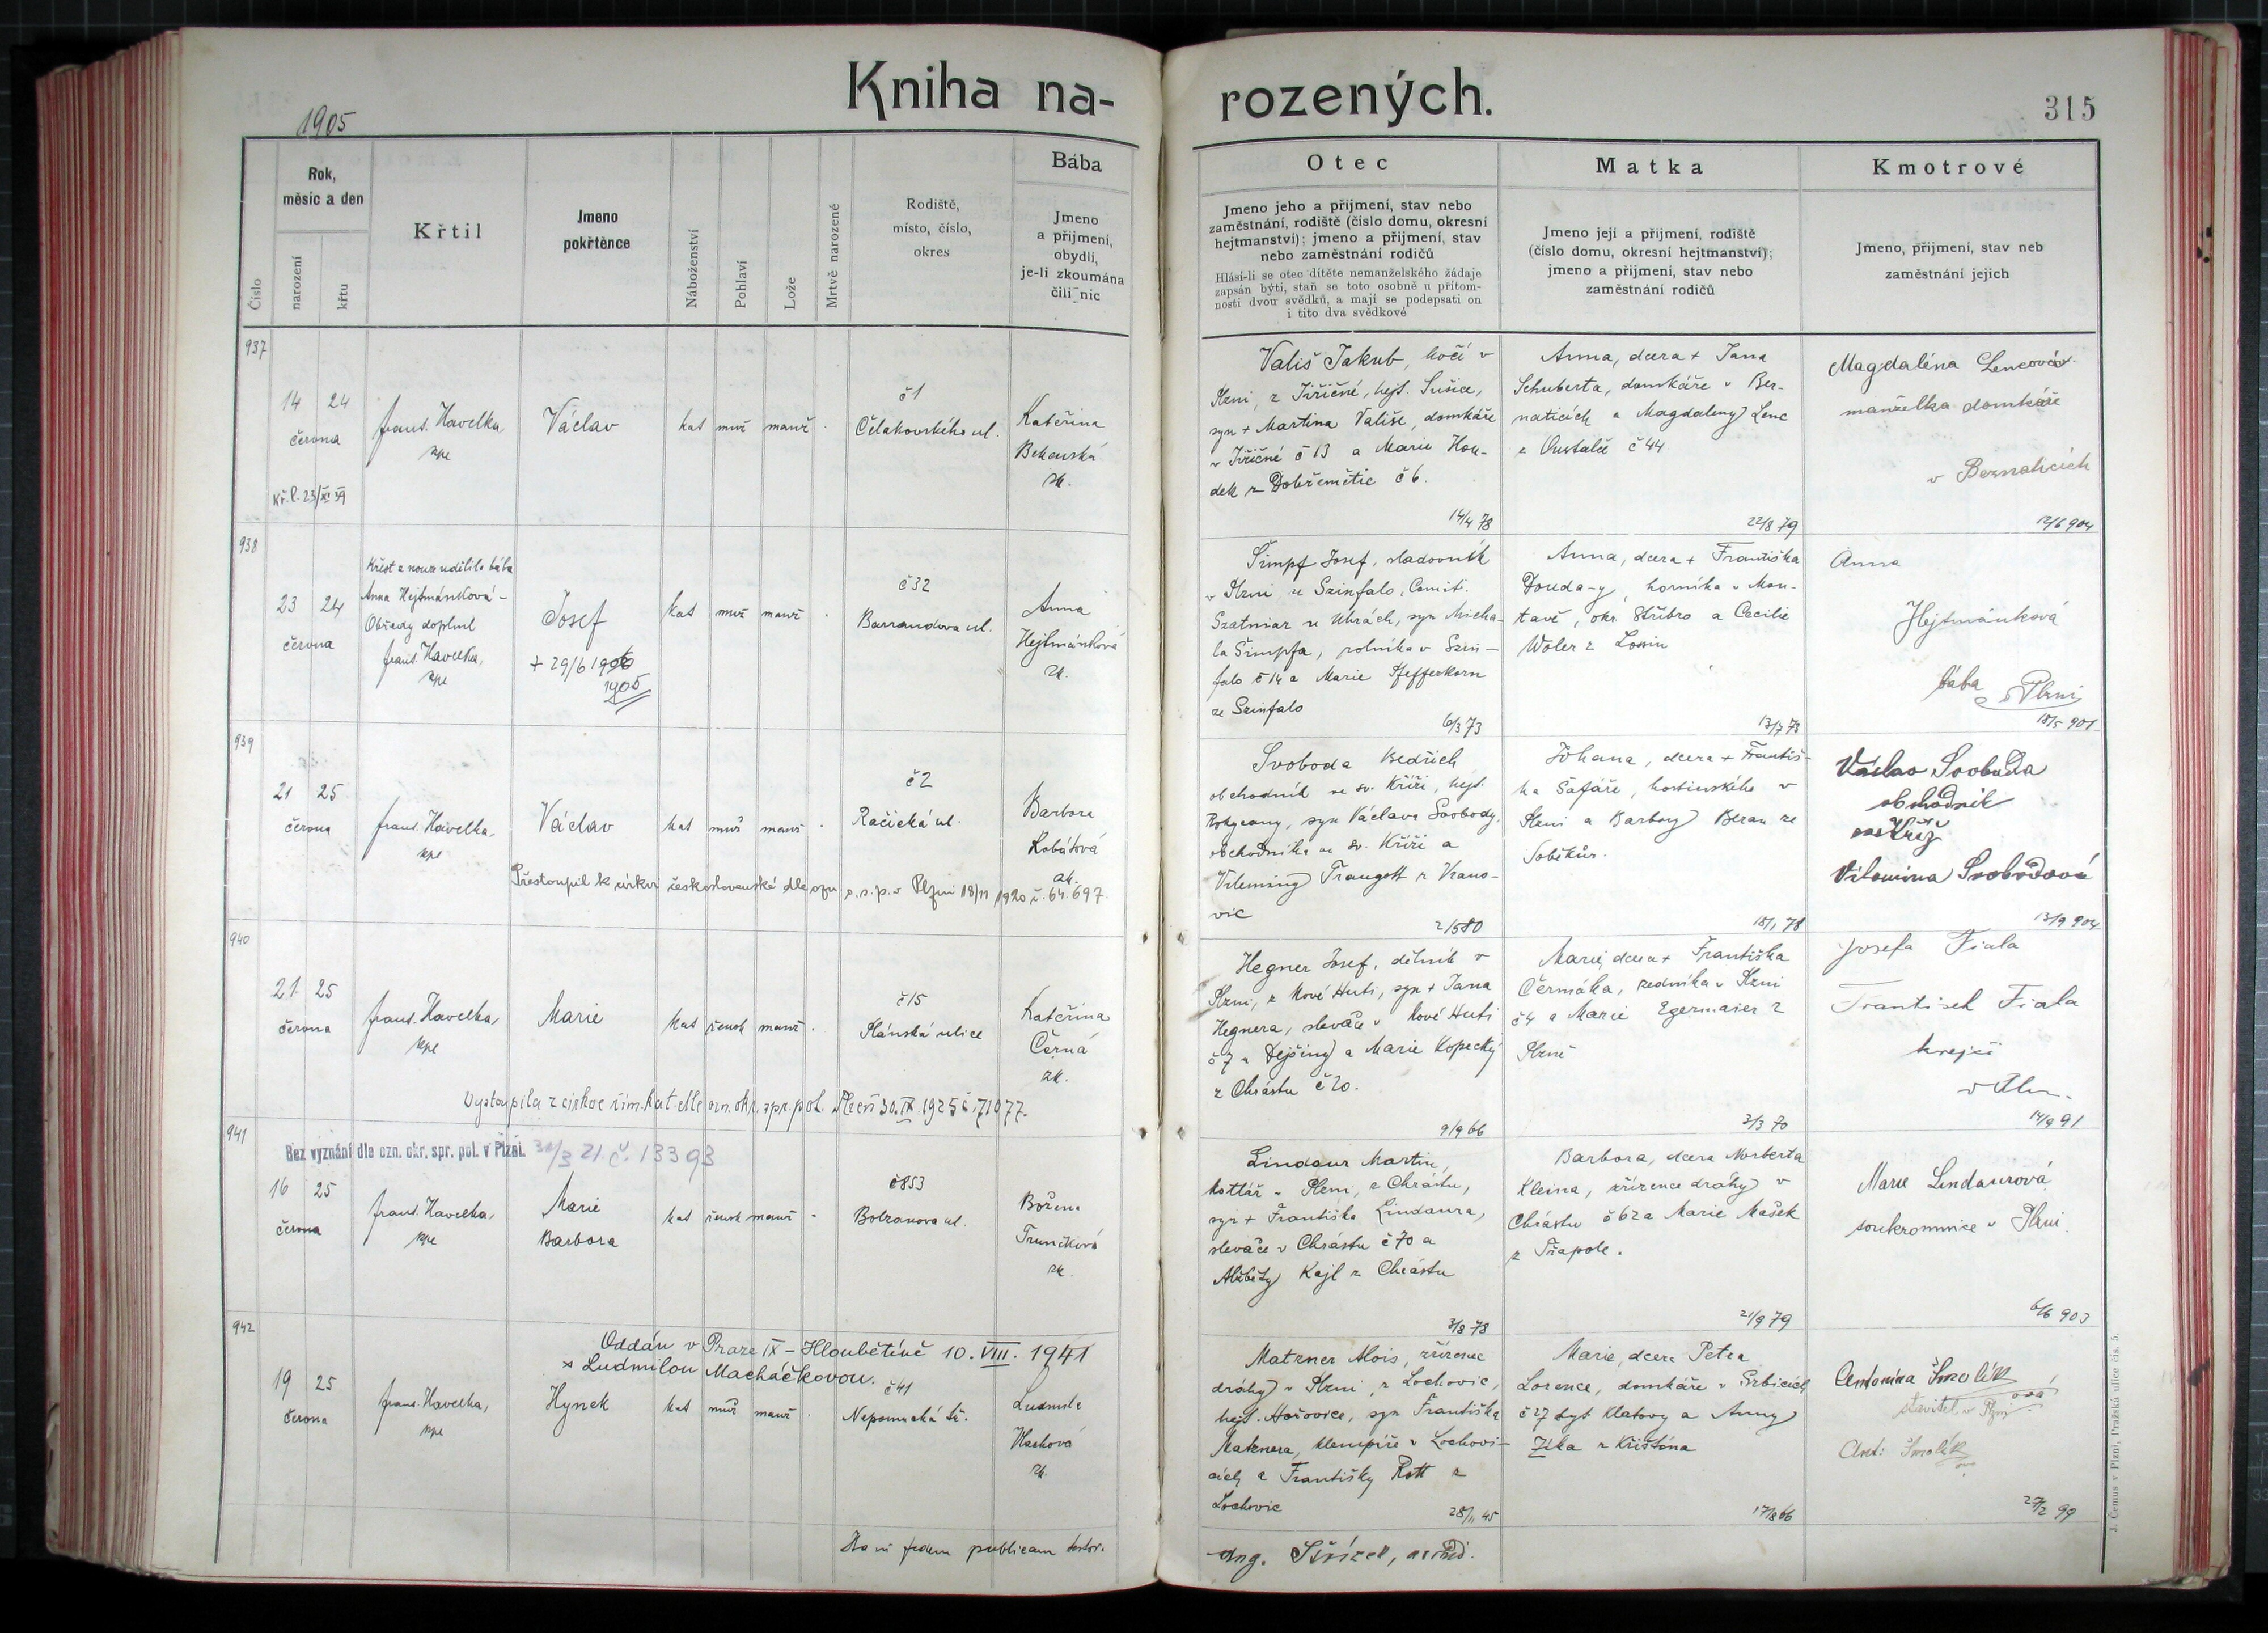 Kniha na-
rozených.
315
1905
Číslo
Rok,
měsíc a den
narození
křtu
Křtil
Jmeno
pokřtěnce
Náboženství
Pohlaví
Lože
Mrtvě narozené
Rodiště,
místo, číslo,
okres
Bába
Jmeno
a přijmení,
obydlí,
je-li zkoumána
čili nic
Otec
Jmeno jeho a přijmení, stav nebo
zaměstnání, rodiště (číslo domu, okresní
hejtmanství); jmeno a přijmení, stav
nebo zaměstnání rodičů
Hlásí-li se otec dítěte nemanželského žádaje
zapsán býti, staň se toto osobně u přítom-
nosti dvou svědků, a mají se podepsati on
i tito dva svědkové
Matka
Jmeno její a přijmení, rodiště
(číslo domu, okresní hejtmanství);
jmeno a přijmení, stav nebo
zaměstnání rodičů
Kmotrové
Jmeno, přijmení, stav neb
zaměstnání jejich
937
14 24
června
Kř. l. 23/XI 39
frant. Havelka,
kpe
Václav
kat muž manž
č 1
Čelakovského ul.
Kateřina
Bekovská
zk.
Vališ Jakub, kočí v
Plzni, z Jiřičné, hejt. Sušice,
syn + Martina Vališe, domkáře
v Jiřičné č 13 a Marie Hou-
dek z Dobřemětic č 6.
14/4 78
Anna, dcera + Jana
Schuberta, domkáře v Ber-
naticích a Magdaleny Lenc
č 44
22/8 79
Magdaléna Lencová
manželka domkáře
v Bernaticích
12/6 904
938
23 24
června
Křest z nouze udělila bába
Anna Hejtmánková -
Obřady doplnil
frant. Havelka,
kpe
Josef
+ 29/6 1906
1905
kat muž manž
č 32
Barrandova ul.
Anna
Hejtmánková
zk.
Šimpf Josef, sladovník
v Plzni ze Szinfalo, Comit.
Szatmar v Uhrách, syn Micha-
la Šimpfa, rolníka v Szin-
falo č 14 a Marie Pfefferkorn
ze Szinfalo
6/3 73
Anna, dcera + Františka
Douda-y, horníka v Man-
tavě, okr. Stříbro a Cecilie
Woler z
13/7 73
Anna
Hejtmánková
bába v Plzni
18/5 901
939
21 25
června
frant. Havelka,
kpe
Václav
kat muž manž
č 2
Račická ul.
Barbora
Kobátová
zk.
Přestoupil k církvi československé dle ozn. o. s. p. v Plzni 18/11 1920 č. 64.697.
Svoboda Bedřich
obchodník ve sv. Kříži, hejt.
Rokycany, syn Václava Svobody,
obchodníka ve sv. Kříži a
Vilemíny Traugott z Vrano-
vic
2/5 80
Johana, dcera + Františ-
ka Šafáře, hostinského v
Plzni a Barbory Beran ze
Soběkur.
18/1 78
Václav Svoboda
obchodník
Kříž
Vilemína Svobodová
13/9 904
940
21 25
června
frant. Havelka,
kpe
Marie
kat žensk manž
č 15
Plánská ulice
Kateřina
Černá
zk.
Vystoupila z církve řím. kat. dle ozn. okr. spr. pol. Plzeň 30. IX. 1925 č. 71077.
Hegner Josef, dělník v
Plzni, z Nové Huti, syn + Jana
Hegnera, slevače v Nové Huti
č 7 u Dejšiny a Marie Kopecký
z Chrástu č 20.
9/9 66
Marie, dcera + Františka
Čermáka, zedníka v Plzni
č 4 a Marie Egermaier z
Plzně
2/3 70
Josefa Fiala
František Fiala
krejčí
v Plzn.
14/9 91
941
Bez vyznání dle ozn. okr. spr. pol. v Plzni. 30/3 21. č. 13393
16 25
června
frant. Havelka,
kpe
Marie
Barbora
kat žensk manž
č 853
Bolzanova ul.
Božena
Truncková
zk.
Lindaur Martin,
kotlář v Plzni, z Chrástu,
syn + Františka Lindaura,
slevače v Chrástu č 70 a
Alžběty Kajl z Chrástu
3/8 78
Barbora, dcera Norberta
Kleina, zřízence dráhy v
Chrástu č 62 a Marie Mašek
z Třapole.
21/9 79
Marie Lindaurová
soukromnice v Plzni.
6/6 903
942
Oddán v Praze IX - Hloubětíně 10. VIII. 1941
s Ludmilou Macháčkovou.
19 25
června
frant. Havelka,
kpe
Hynek
kat muž manž
č 41
Nepomucká tř.
Ludmila
Hachová
zk.
Matzner Alois, zřízenec
dráhy v Plzni, z Lochovic,
hejt. Hořovice, syn Františka
Matznera, klempíře v Lochovi-
cích a Františky Rott z
Lochovic
28/11 45
Marie, dcera Petra
Lorence, domkáře v Srbicích
č 27 hejt Klatovy a Anny
Zíka z Křištína
17/8 66
Antonína Smolík
ová
stavitel v Plzni
Ant: Smolík
27/2 99
fidem publicam testor.